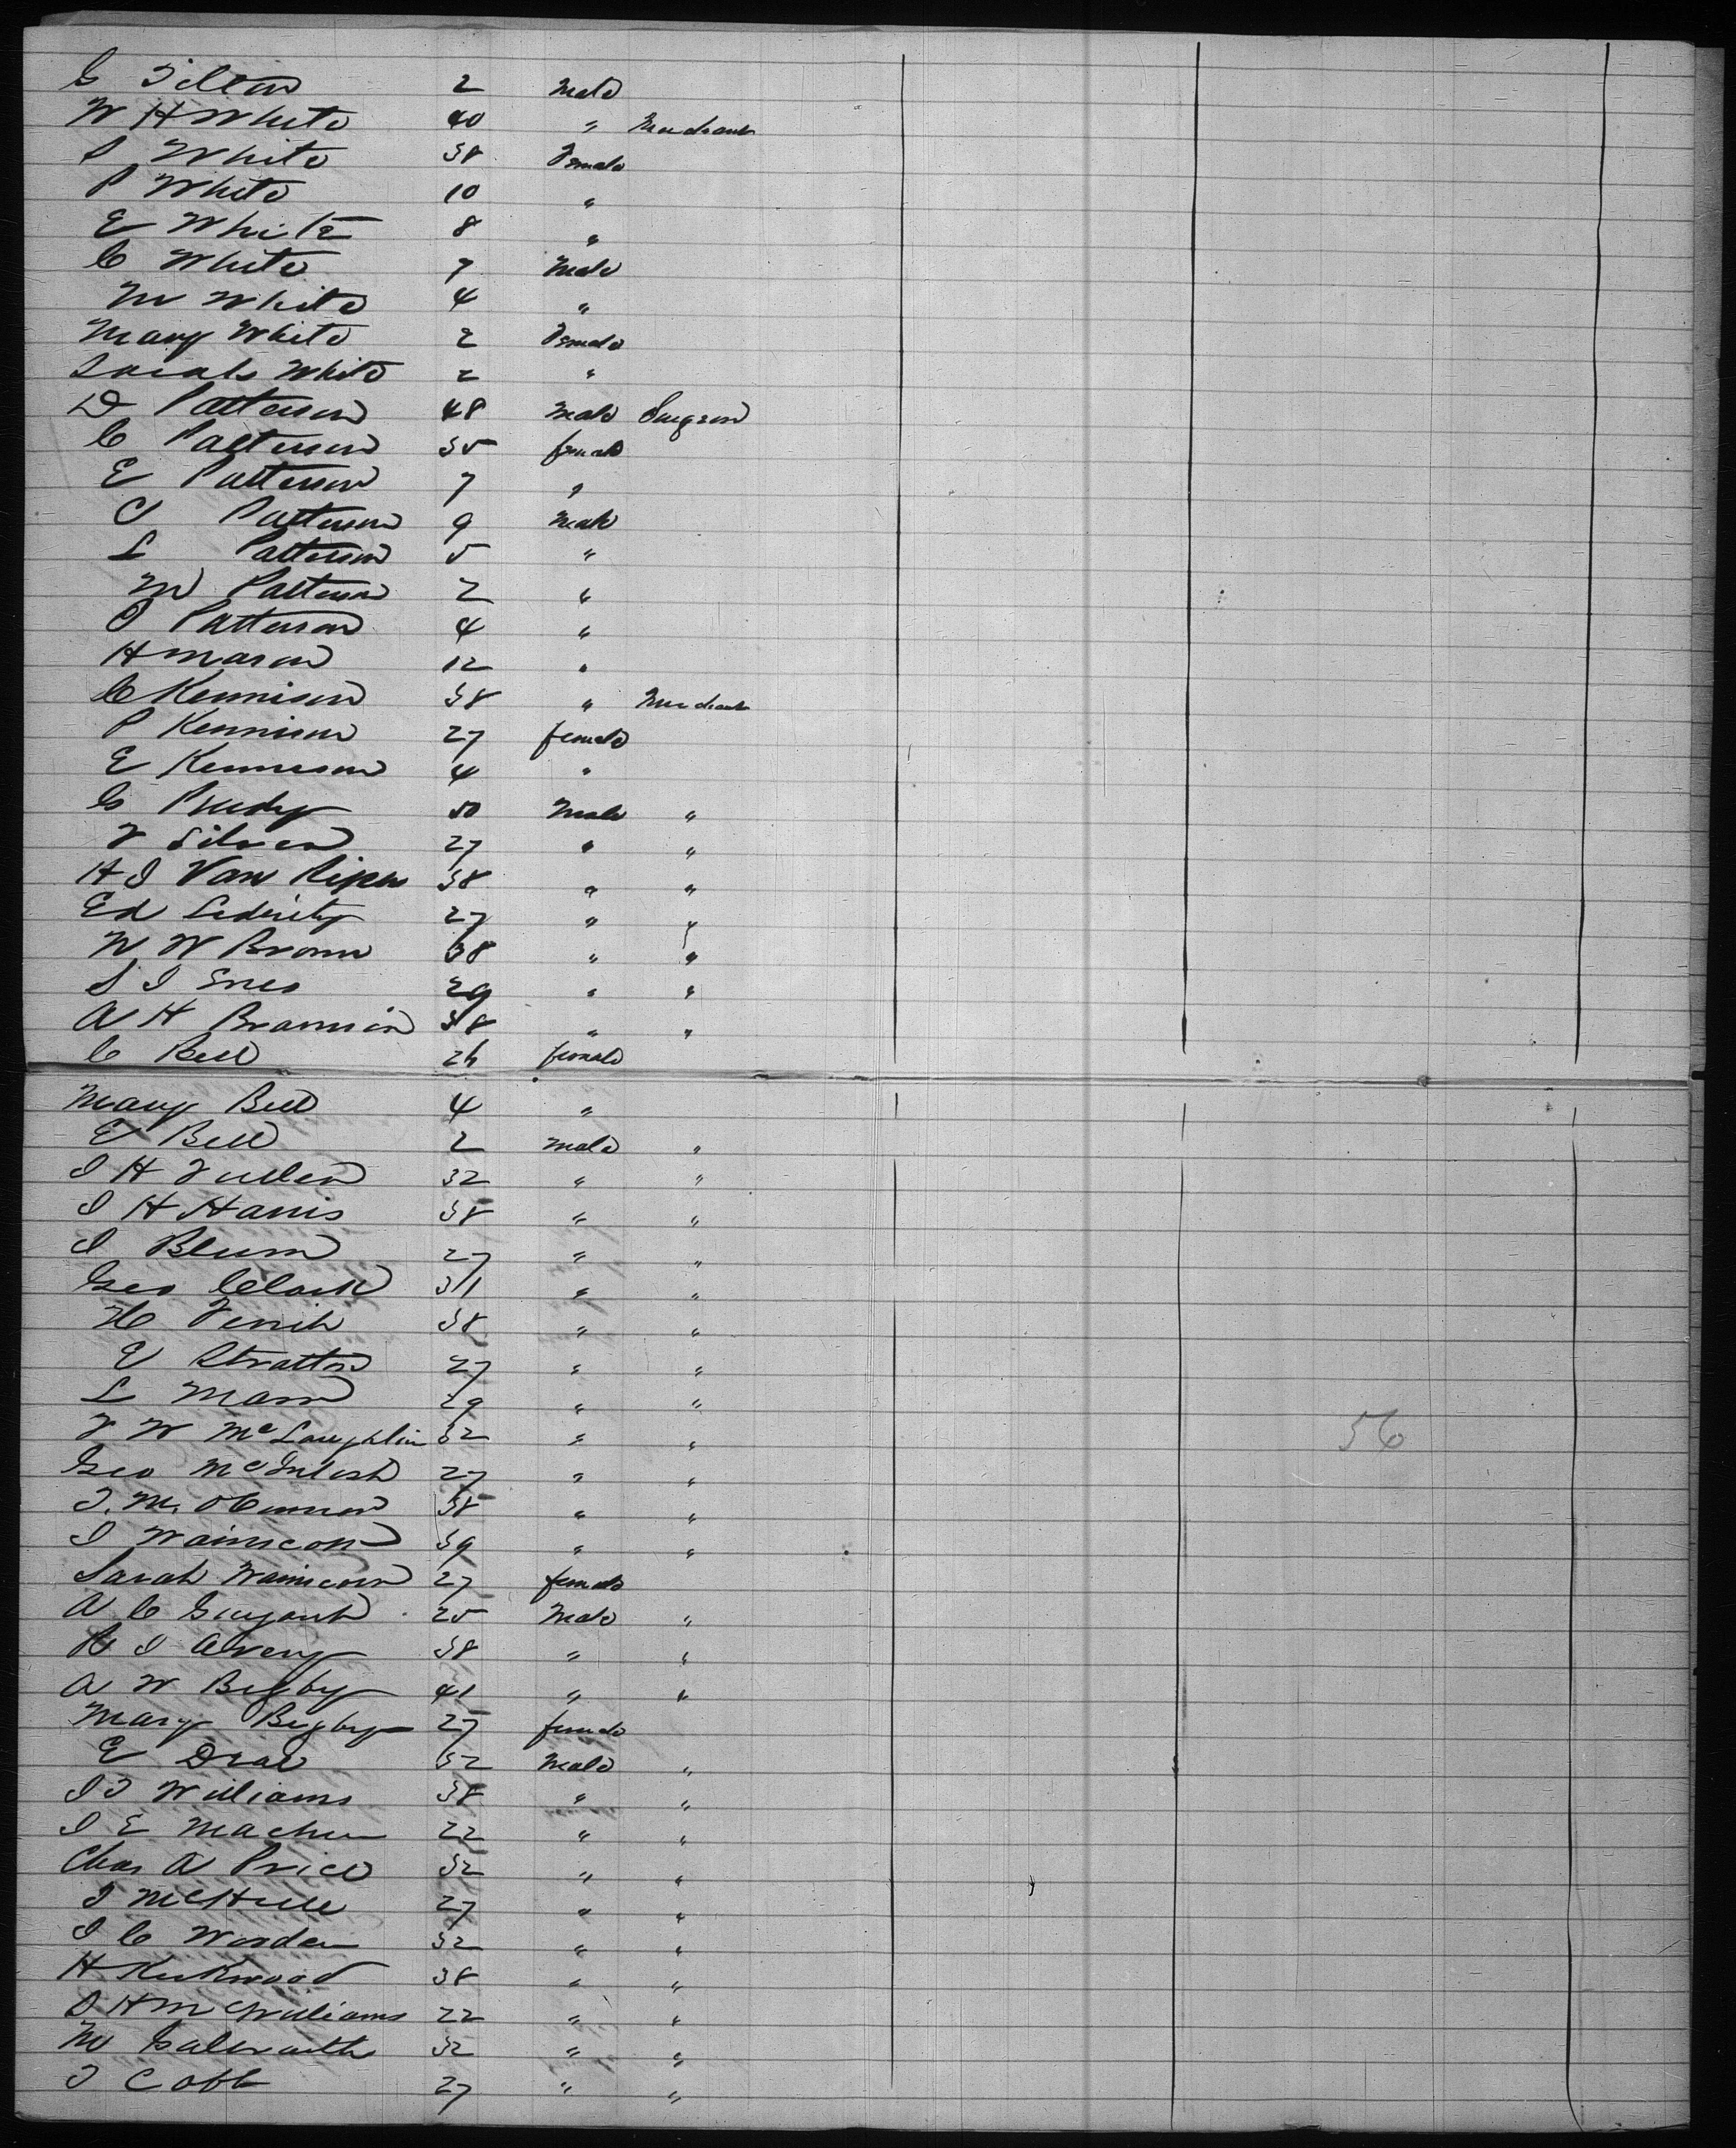 G Tilton 2 Male
W H White 40 " Merchant
S White 38 Female
P White 10 "
E White 8 "
C White 7 Male
M White 4 "
Mary White 2 Female
Sarah White 2 "
D Patterson 48 Male Surgeon
C Patterson 35 female
E Patterson 7 "
J Patterson 9 Male
L Patterson 5 "
M Patterson 2 "
J Patterson 4 "
H Mason 12 "
C Kennison 38 " Merchant
P Kennison 27 female
E Kennison 4 "
G Purdy 50 Male "
F Silver 27 " "
H J Van Riper 38 " "
Ed 27 " "
W W Brown 38 " "
S J Enes 29 " "
A H Brannin 38 " "
C Bell 26 female
Mary Bell 4 "
E Bell 2 Male "
J H Fuller 32 " "
J H Harris 38 " "
J Blum 27 " "
Geo Clark 31 " "
H 38 " "
E Stratton 27 " "
L Mann 29 " "
F W McLaughlin 32 " "
Geo McIntosh 27 " "
J. M. OConnor 38 " "
J 39 " "
Sarah 27 female
A C 25 Male "
R J Avery 38 " "
A W Bigby 41 " "
Mary Bigby 27 female
E Drae 32 Male "
J J Williams 38 " "
J E Machen 22 " "
Chas A Price 32 " "
J McHill 27 " "
J C Worden 32 " "
H Kirkwood 38 " "
S H McWilliams 22 " "
M Galbraith 32 " "
J Cobb 27 " "
56